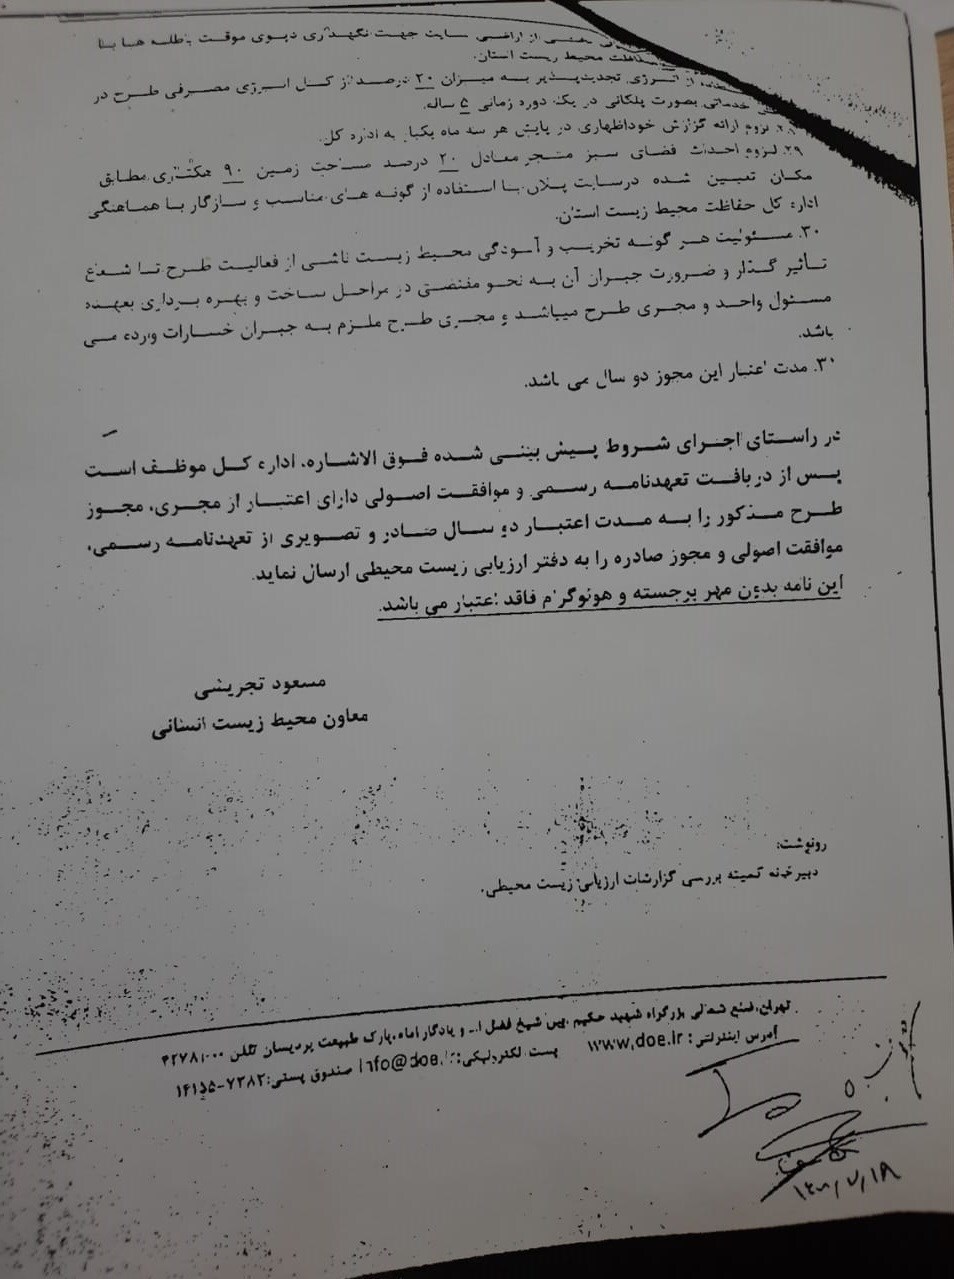 از اراضی سایت جهت نگهداری دپوی موقت باطله ها با
حفاظت محیط زیست استان.
از انرژی تجدیدپذیر به میزان ۲۰ درصد از کل انرژی مصرفی طرح در
خدماتی بصورت پلکانی در یک دوره زمانی ۵ ساله.
۲۸. لزوم ارائه گزارش خوداظهاری در پایش هر سه ماه یکبار به اداره کل.
۲۹. لزوم احداث فضای سبز مشجر معادل ۲۰ درصد مساحت زمین ۹۰ هکتاری مطابق
مکان تعیین شده درسایت پلان با استفاده از گونه های مناسب و سازگار با هماهنگی
اداره کل حفاظت محیط زیست استان.
۳۰. مسئولیت هر گونه تخریب و آلودگی محیط زیست ناشی از فعالیت طرح تا شعاع
تأثیر گذار و ضرورت جبران آن به نحو مقتضی در مراحل ساخت و بهره برداری بعهده
مسئول واحد و مجری طرح میباشد و مجری طرح ملزم به جبران خسارات وارده می
باشد.
۳۰. مدت اعتبار این مجوز دو سال می باشد.
در راستای اجرای شروط پیش بینی شده فوق الاشاره، اداره کل موظف است
پس از دریافت تعهدنامه رسمی و موافقت اصولی دارای اعتبار از مجری، مجوز
طرح مذکور را به مدت اعتبار دو سال صادر و تصویری از تعهدنامه رسمی،
موافقت اصولی و مجوز صادره را به دفتر ارزیابی زیست محیطی ارسال نماید.
این نامه بدون مهر برجسته و هولوگرام فاقد اعتبار می باشد.
مسعود تجریشی
معاون محیط زیست انسانی
رونوشت:
دبیرخانه کمیته بررسی گزارشات ارزیابی زیست محیطی.
تهران، ضلع شمالی بزرگراه شهید حکیم، بین شیخ فضل ا... و یادگار امام، پارک طبیعت پردیسان تلفن ۴۲۷۸۱۰۰۰
آدرس اینترنتی: www.doe.ir پست الکترونیکی: info@doe.ir صندوق پستی: ۷۳۸۳-۱۴۱۵۵